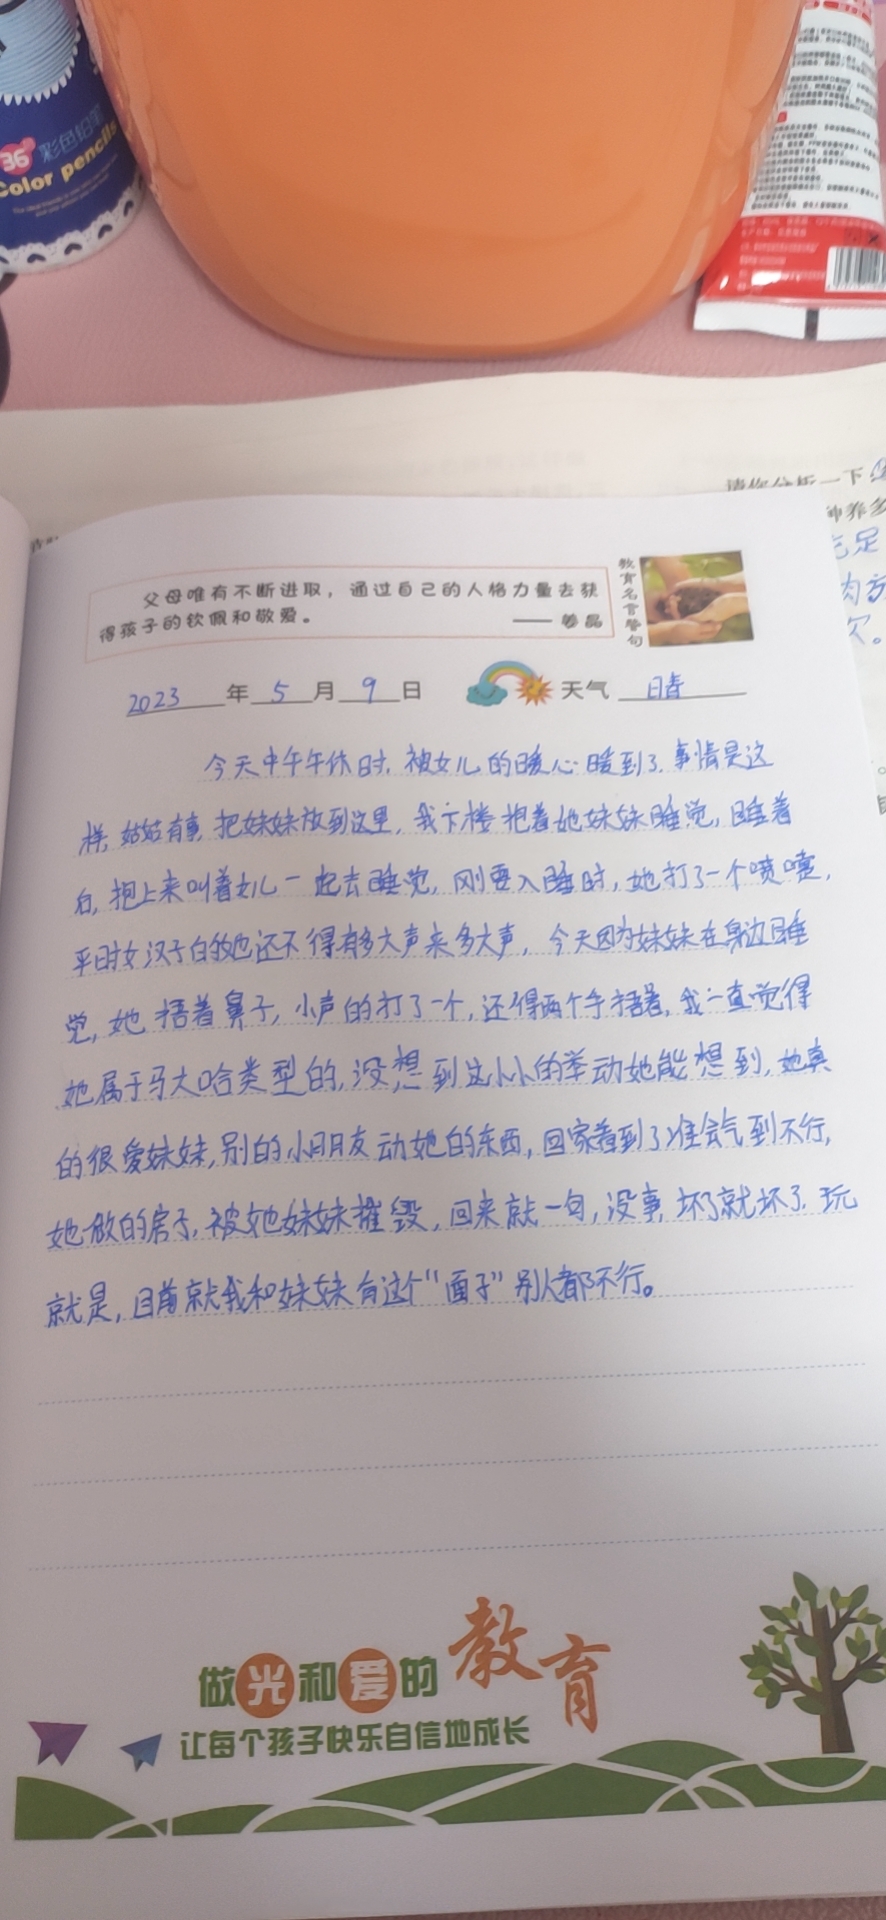 36 彩色铅笔
Color pencils
请你分析一下
种养多
父母唯有不断进取，通过自己的人格力量去获
得孩子的钦佩和敬爱。 —— 姜晶
教育名言警句
2023年5月9日 天气 晴
今天中午午休时，被女儿的暖心暖到了，事情是这
样，姑姑有事，把妹妹放到这里，我下楼抱着她妹妹睡觉，睡着
后，抱上来叫着女儿一起去睡觉，刚要入睡时，她打了一个喷嚏，
平时女汉子的她还不得有多大声来多大声，今天因为妹妹在身边睡
觉，她捂着鼻子，小声的打了一个，还得两个手捂着，我一直觉得
她属于马大哈类型的，没想到这小小的举动她能想到，她真
的很爱妹妹，别的小朋友动她的东西，回家看到了准会气到不行，
她做的房子，被她妹妹摧毁，回来就一句，没事，坏了就坏了，玩
就是，目前就我和妹妹有这个“面子”别人都不行。
做光和爱的教育
让每个孩子快乐自信地成长